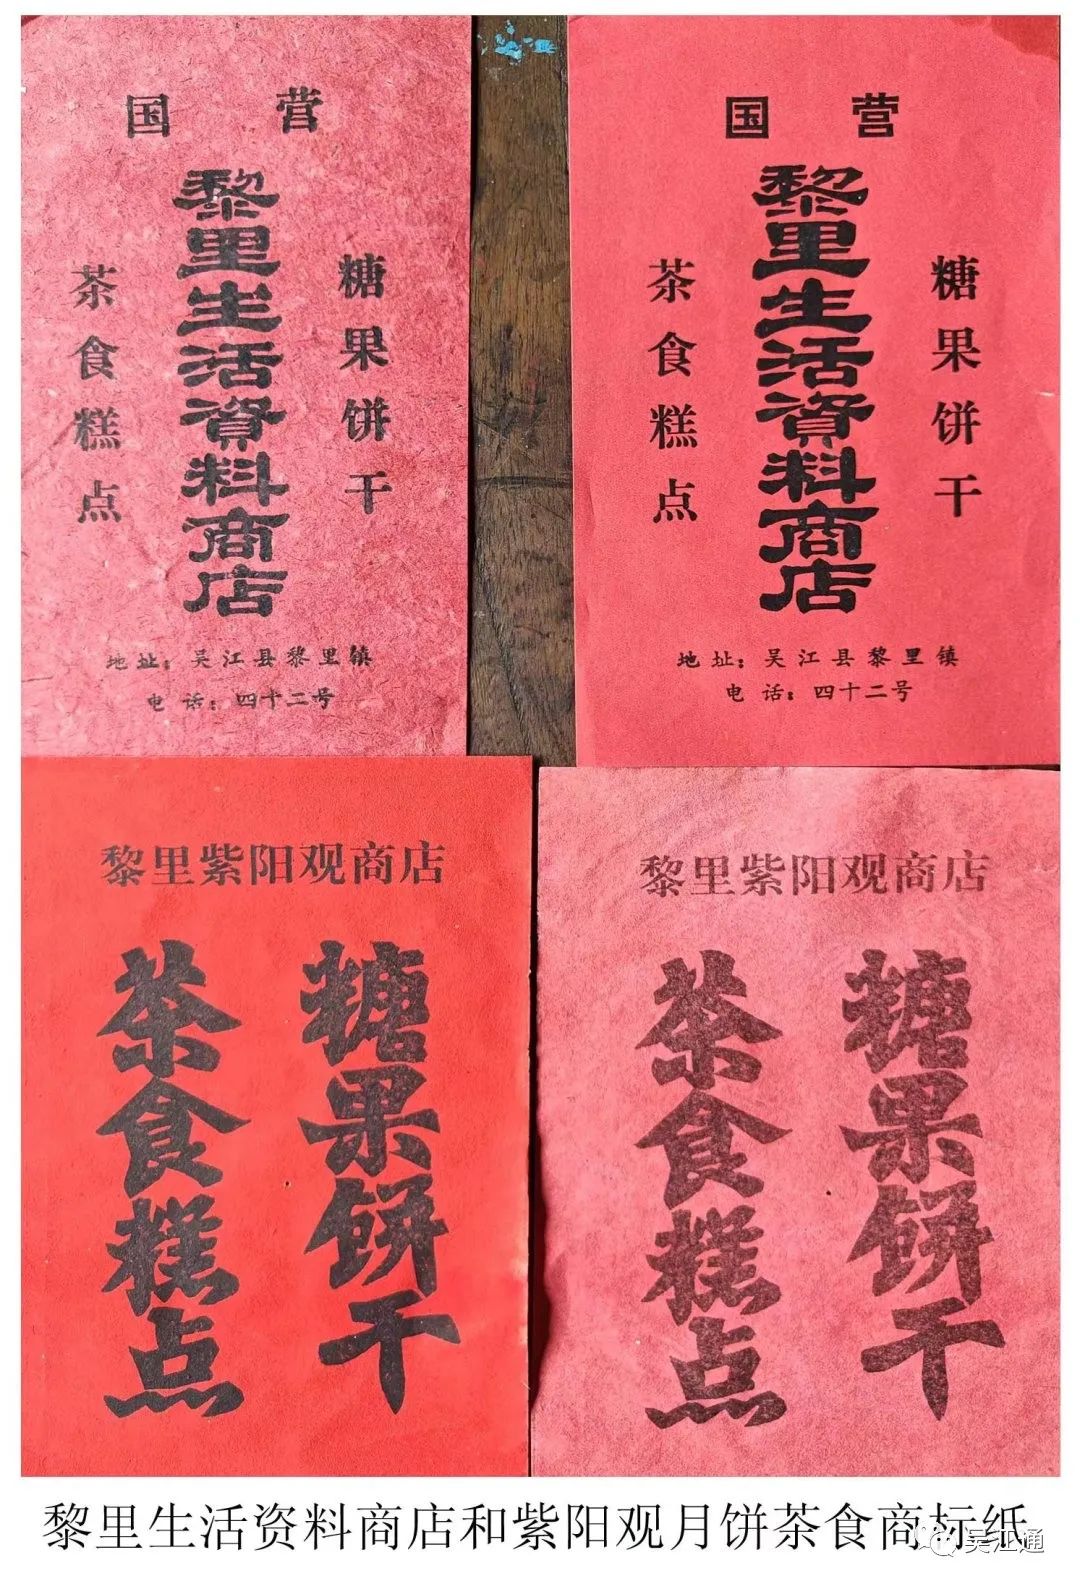 国营
糖果饼干
黎里生活資料商店
茶食糕点
地址：吴江县黎里镇
电话：四十二号
国营
糖果饼干
黎里生活資料商店
茶食糕点
地址：吴江县黎里镇
电话：四十二号
黎里紫阳观商店
糖果饼干
茶食糕点
黎里紫阳观商店
糖果饼干
茶食糕点
黎里生活资料商店和紫阳观月饼茶食商标纸
吴江通